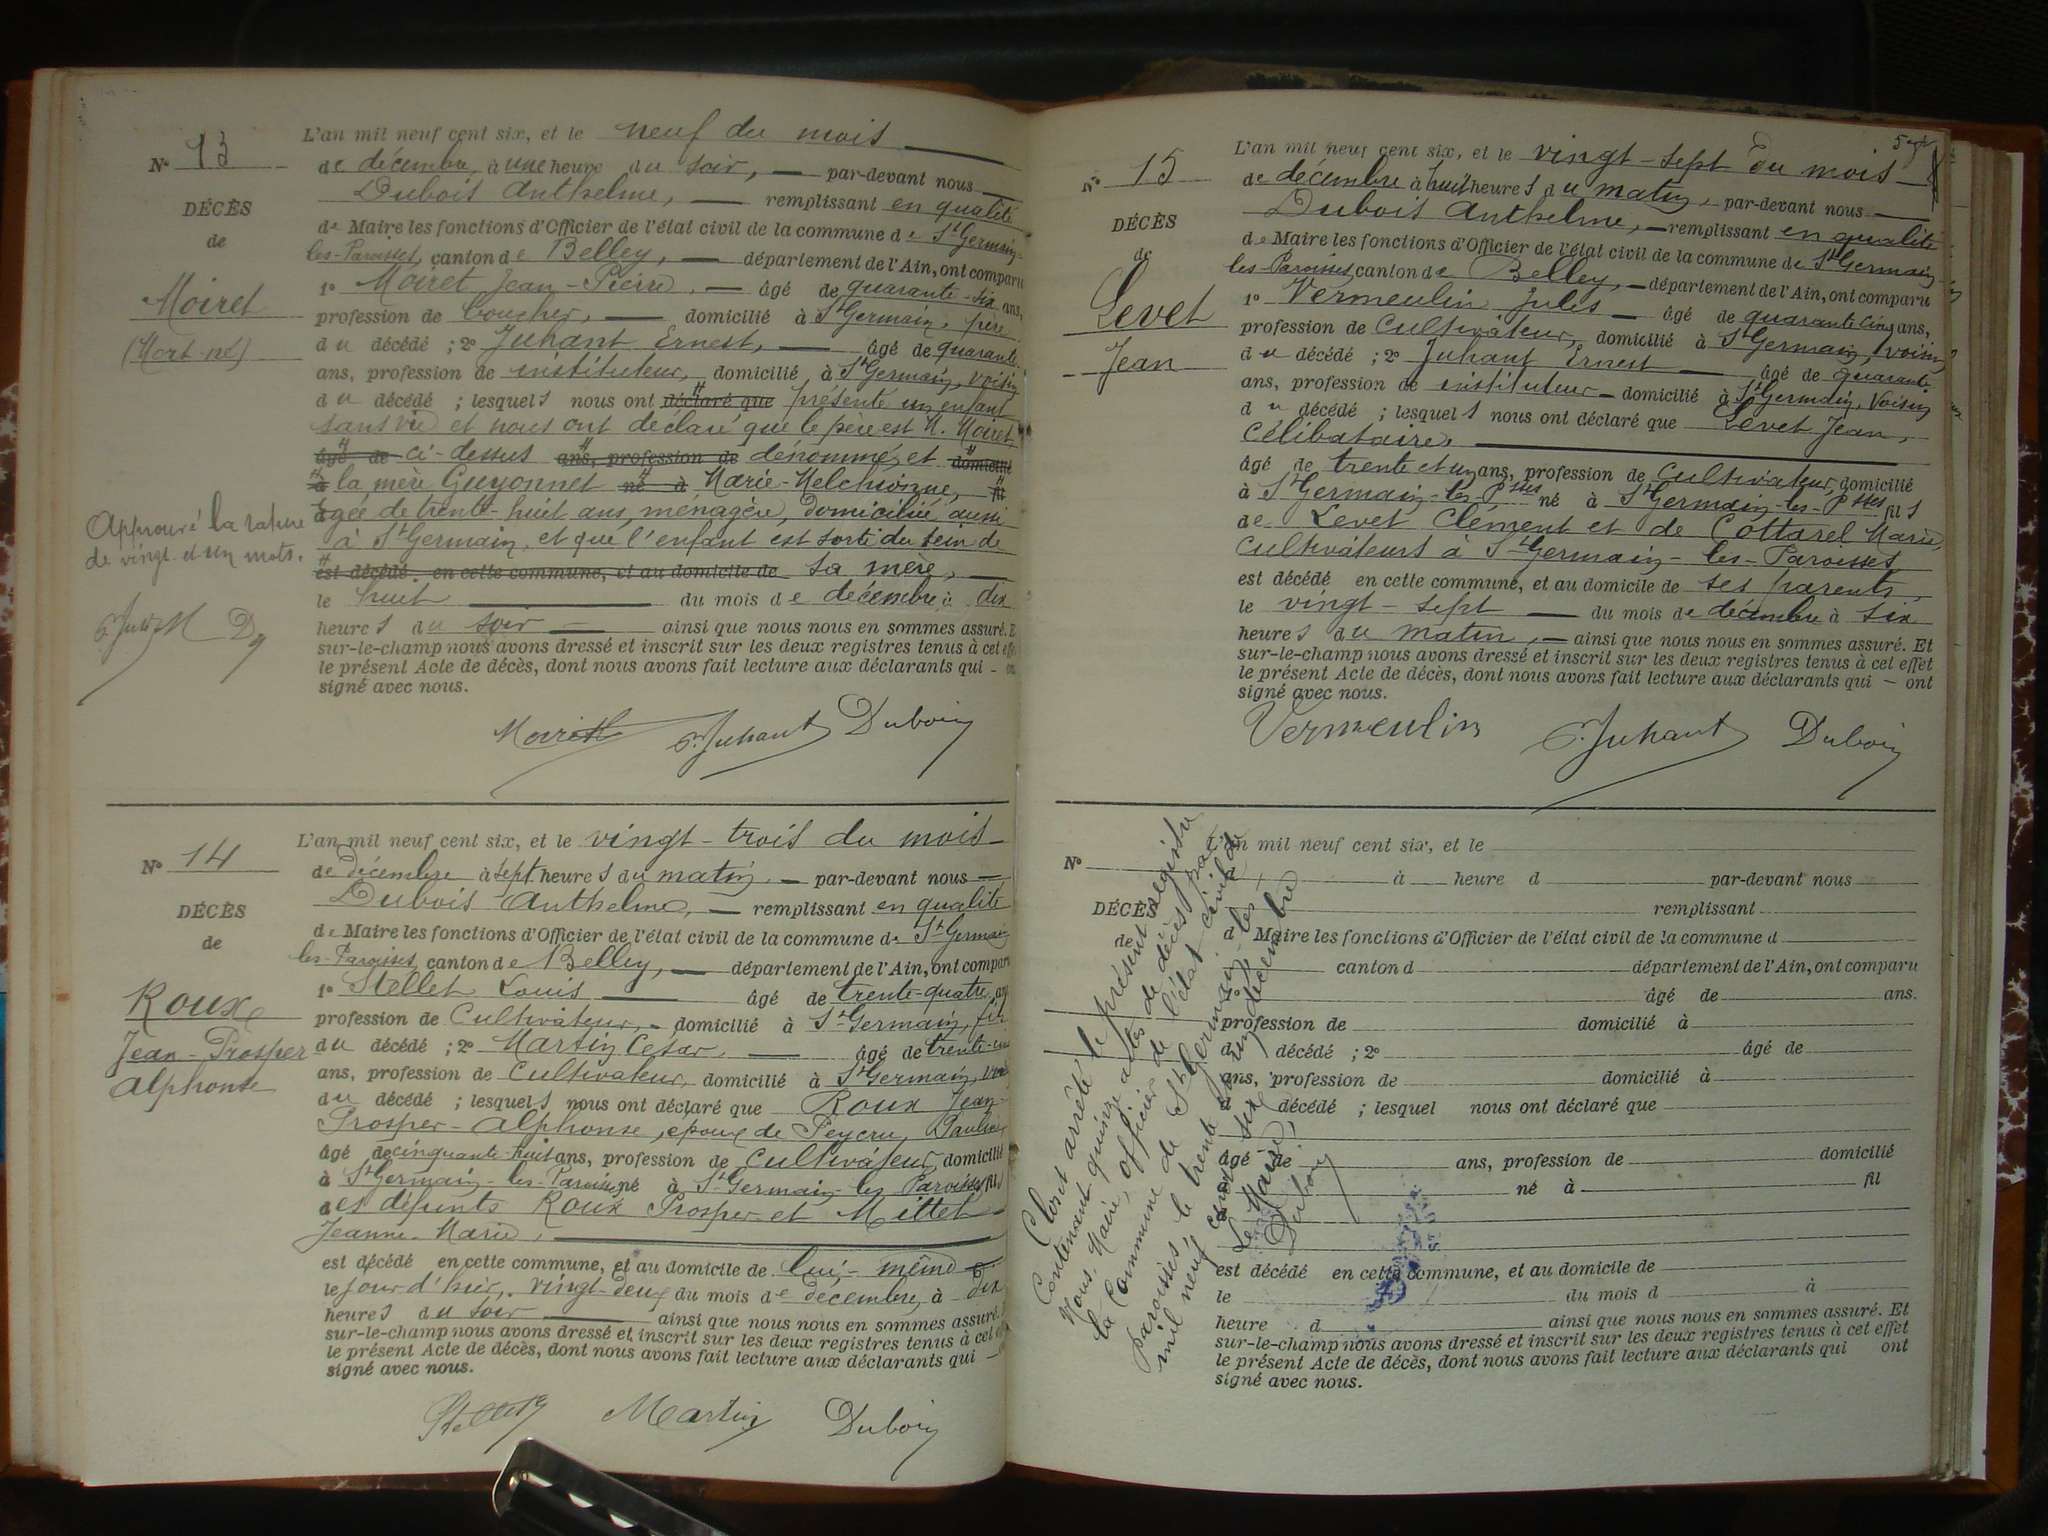 N° 13
DÉCÈS
de
Moiret
(Mort-né)
Approuvé la rature
de vingt et un mots.
L'an mil neuf cent six, et le neuf du mois
de décembre, à une heure du soir, par-devant nous
Dubois Anthelme, remplissant en qualité
de Maire les fonctions d'Officier de l'état civil de la commune de St Germain-
les-Paroisses, canton de Belley, département de l'Ain, ont comparu
1° Moiret Jean-Pierre, âgé de quarante-six ans,
profession de boucher, domicilié à St Germain, père
du décédé ; 2° Juhant Ernest, âgé de quarante
ans, profession de instituteur, domicilié à St Germain, voisin
du décédé ; lesquels nous ont déclaré que présenté un enfant
sans vie et nous ont déclaré que le père est M. Moiret,
âgé de ci-dessus ans, profession de dénommé, et domicilié
à la mère Guyonnet né à Marie-Melchionne, fil
âgée de trente-huit ans, ménagère, domiciliée aussi
à St Germain, et que l'enfant est sorti du sein de
est décédé en cette commune, et au domicile de sa mère,
le huit du mois de décembre à dix
heures du soir ainsi que nous nous en sommes assuré. E
sur-le-champ nous avons dressé et inscrit sur les deux registres tenus à cet eff
le présent Acte de décès, dont nous avons fait lecture aux déclarants qui - on
signé avec nous.
Moiret E. Juhant Dubois
N° 14
DÉCÈS
de
Roux
Jean-Prosper
Alphonse
L'an mil neuf cent six, et le vingt-trois du mois
de décembre à sept heures du matin, par-devant nous
Dubois Anthelme, remplissant en qualité
de Maire les fonctions d'Officier de l'état civil de la commune de St Germain
les-Paroisses, canton de Belley, département de l'Ain, ont comparu
1° Stellet Louis âgé de trente-quatre ans
profession de Cultivateur, domicilié à St Germain,
du décédé ; 2° Martin César, âgé de trente-un
ans, profession de Cultivateur, domicilié à St Germain, voisin
du décédé ; lesquels nous ont déclaré que Roux Jean-
Prosper-Alphonse, époux de Peycru, Pauline
âgé de cinquante-huit ans, profession de Cultivateur, domicilié
à St Germain-les-Paroisses né à St Germain-les-Paroisses, fil
des défunts Roux Prosper et Mittet
Jeanne-Marie,
est décédé en cette commune, et au domicile de lui-même
le jour d'hier, vingt-deux du mois de décembre, à dix
heures du soir ainsi que nous nous en sommes assuré.
sur-le-champ nous avons dressé et inscrit sur les deux registres tenus à cet
le présent Acte de décès, dont nous avons fait lecture aux déclarants qui -
signé avec nous.
Martin Dubois
N° 15
DÉCÈS
de
Levet
Jean
L'an mil neuf cent six, et le vingt-sept du mois
de décembre à huit heures du matin, par-devant nous
Dubois Anthelme, remplissant en qualité
de Maire les fonctions d'Officier de l'état civil de la commune de St Germain
les-Paroisses, canton de Belley, département de l'Ain, ont comparu
1° Vermeulin Jules âgé de quarante cinq ans,
profession de Cultivateur, domicilié à St Germain, voisin
du décédé ; 2° Juhant Ernest âgé de quarante
ans, profession de instituteur domicilié à St Germain, voisin
du décédé ; lesquels nous ont déclaré que Levet Jean,
célibataire,
âgé de trente et un ans, profession de Cultivateur, domicilié
à St Germain-les-Psses né à St Germain-les-Psses fils
de Levet Clément et de Cottarel Marie,
Cultivateurs à St Germain-les-Paroisses
est décédé en cette commune, et au domicile de ses parents,
le vingt-sept du mois de décembre à six
heures du matin, ainsi que nous nous en sommes assuré. Et
sur-le-champ nous avons dressé et inscrit sur les deux registres tenus à cet effet
le présent Acte de décès, dont nous avons fait lecture aux déclarants qui - ont
signé avec nous.
Vermeulin E. Juhant Dubois
N°
DÉCÈS
de
L'an mil neuf cent six, et le
d à heure d par-devant nous
remplissant
d Maire les fonctions d'Officier de l'état civil de la commune d
canton d département de l'Ain, ont comparu
1° âgé de ans.
profession de domicilié à
d décédé ; 2° âgé de
ans, profession de domicilié à
d décédé ; lesquel nous ont déclaré que
âgé de ans, profession de domicilié
à né à fil
est décédé en cette commune, et au domicile de
le du mois d à
heure d ainsi que nous nous en sommes assuré. Et
sur-le-champ nous avons dressé et inscrit sur les deux registres tenus à cet effet
le présent Acte de décès, dont nous avons fait lecture aux déclarants qui ont
signé avec nous.
Clos et arrêté le présent registre
contenant quinze actes de décès par
Nous, Maire, officier de l'état civil de
la Commune de St Germain-les-
Paroisses, le trente et un décembre
mil neuf cent six
Le Maire,
Dubois